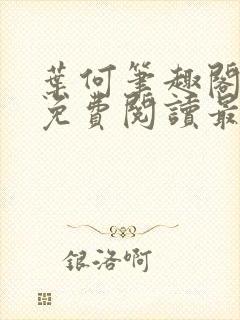 葉何筆趣閣
免費閱讀最
銀洛啊